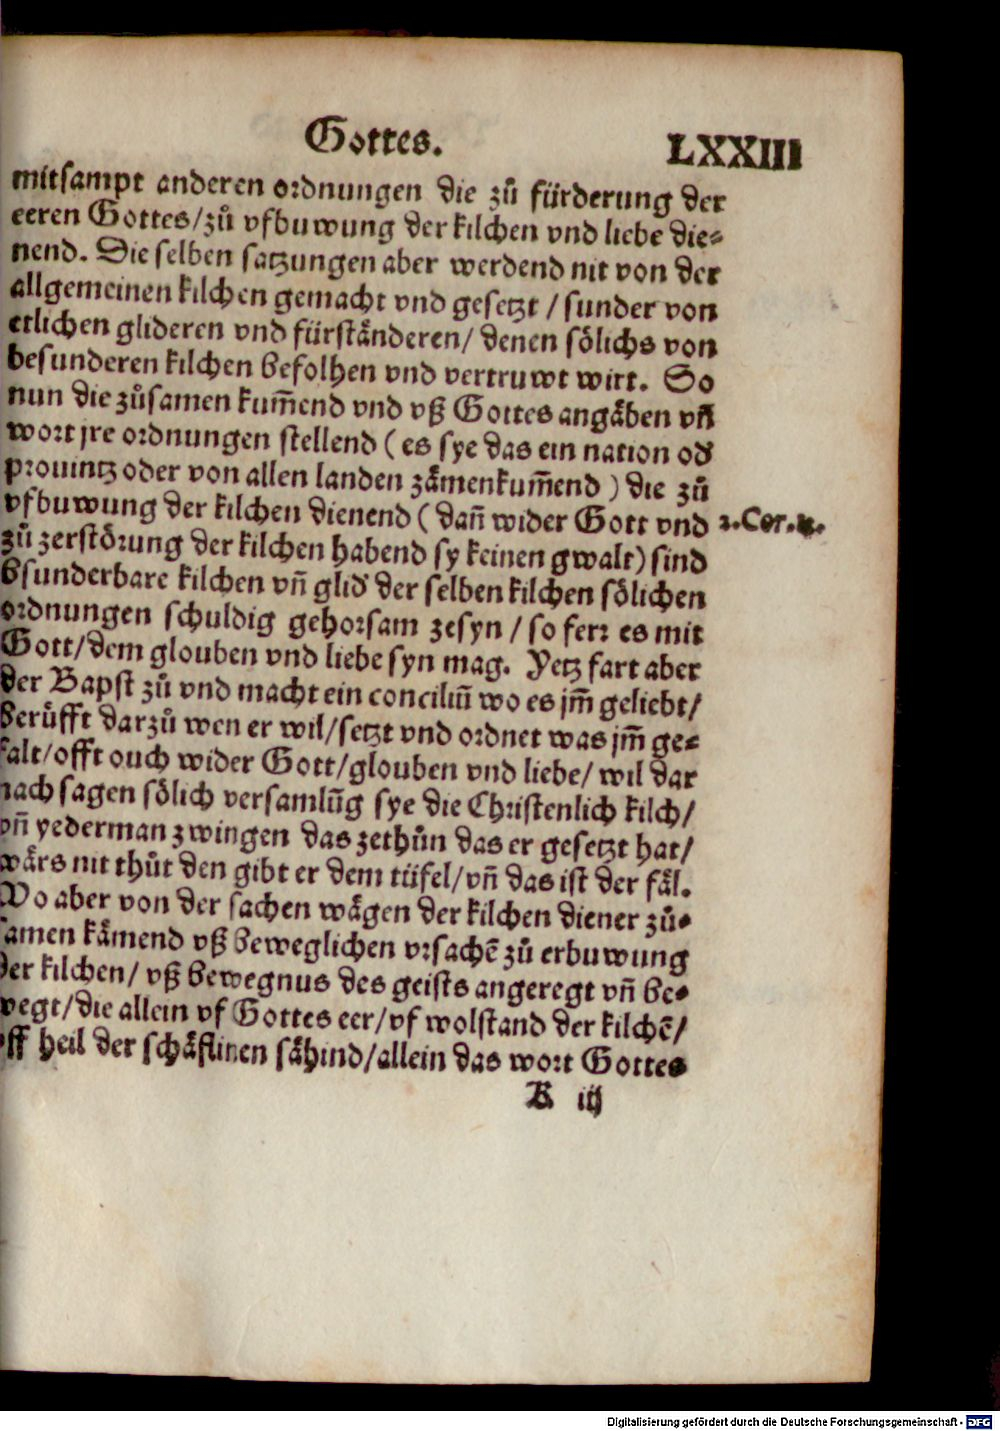 Gottes. LXXIII
mitsampt anderen ordnungen die zů fürderung der
eeren Gottes/zů vfbuwung der kilchen vnd liebe die⸗
nend. Die selben satzungen aber werdend nit von der
allgemeinen kilchen gemacht vnd gesetzt / sunder von
etlichen glideren vnd fürstånderen/ denen sölichs von
besunderen kilchen befolhen vnd vertruwt wirt. So
nun die zůsamen kum̄end vnd vß Gottes angåben vn̄
wort jre ordnungen stellend ( es sye das ein nation od'
prouintz oder von allen landen zåmenkum̄end ) die zů
vfbuwung der kilchen dienend ( dan̄ wider Gott vnd
zů zerstörung der kilchen habend sy keinen gwalt) sind
bsunderbare kilchen vn̄ glid' der selben kilchen sölichen
ordnungen schuldig gehorsam zesyn / so ferr es mit
Gott/dem glouben vnd liebe syn mag. Yetz fart aber
der Bapst zů vnd macht ein conciliū wo es jm̄ geliebt/
berůfft darzů wen er wil/setzt vnd ordnet was jm̄ ge⸗
falt/offt ouch wider Gott/glouben vnd liebe/ wil dar
nach sagen sölich versamlūg sye die Christenlich kilch/
vn̄ yederman zwingen das zethůn das er gesetzt hat/
wårs nit thůt den gibt er dem tüfel/vn̄ das ist der fål.
Wo aber von der sachen wågen der kilchen diener zů⸗
samen kåmend vß beweglichen vrsachē zů erbuwung
der kilchen/ vß bewegnus des geists angeregt vn̄ be⸗
wegt/die allein vf Gottes eer/vf wolstand der kilchē/
vff heil der schåflinen såhind/allein das wort Gottes
K iij
2.Cor.
Digitalisierung gefördert durch die Deutsche Forschungsgemeinschaft - DFG